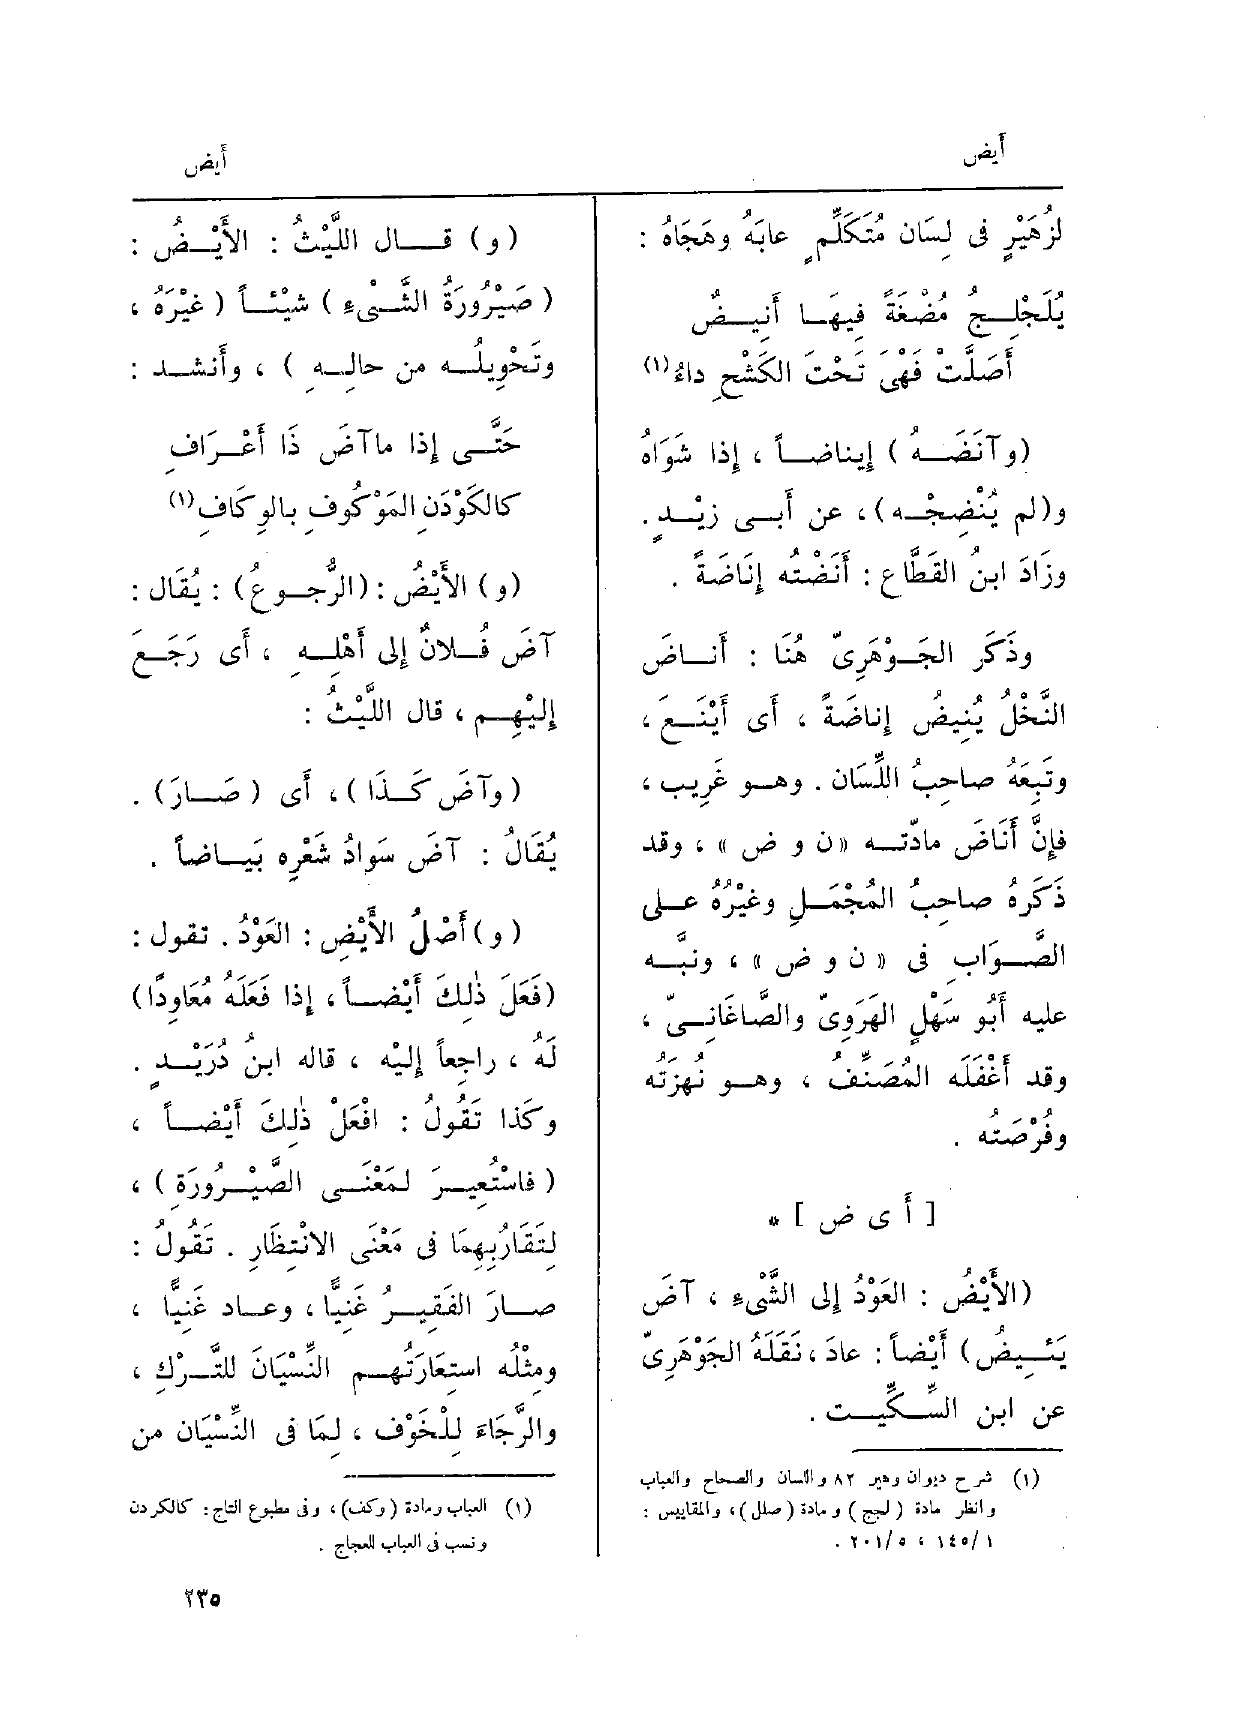 أيض
أيض
لزُهَيْرٍ فى لِسَان مُتَكَلِّمٍ عابَهُ وهَجَاهُ :
يُلَجْلِــجُ مُضْغَةً فيهَــا أَنِيــضٌ
أَصَلَّتْ فَهْىَ تَحْتَ الكَشْحِ داءُ(١)
(وآنَضَــهُ) إيناضــاً ، إذا شَوَاهُ
و(لم يُنْضِجْـه)، عن أَبــى زيْــدٍ.
وزَادَ ابنُ القَطَّاع : أَنَضْتُه إنَاضَةً .
وذَكَر الجَــوْهَرِىّ هُنَا : أَنــاضَ
النَّخْلُ يُنِيضُ إناضَةً ، أَى أَيْنَــعَ ،
وتَبِعَهُ صاحِبُ اللِّسَان . وهــو غَرِيب ،
فإِنَّ أَنَاضَ مادّتــه «ن و ض» ، وقد
ذَكَرهُ صاحِبُ المُجْمَــلِ وغيْرُهُ علــى
الصَّــوَابِ فى «ن و ض» ، ونبَّــه
عليه أَبُو سَهْلٍ الهَرَوِىّ والصَّاغَانِــىّ ،
وقد أَغْفَلَه المُصَنِّفُ ، وهــو نُهْزَتُه
وفُرْصَتُه .
[ أ ى ض ] *
(الأَيْضُ : العَوْدُ إلى الشَّىْءِ ، آضَ
يَئِــيضُ) أَيْضاً : عادَ ، نَقَلَهُ الجَوْهَرِىّ
عن ابن السِّــكِّيــت .
(١) شرح ديوان زهير ٨٢ واللسان والصحاح والعباب
وانظر مادة (لجج) ومادة (صلل) ، والمقاييس :
١٤٥/١ ، ٢٠١/٥ .
(و) قــال اللَّيْثُ : الأَيْــضُ :
(صَيْرُورَةُ الشَّــىْءِ) شيْئــاً (غَيْرَهُ ،
وتَحْوِيلُــه من حالِــهِ) ، وأَنشــد :
حَتَّــى إذا ماآضَ ذَا أَعْــرَافِ
كالكَوْدَنِ المَوْكُوفِ بالوِكَافِ(١)
(و) الأَيْضُ : (الرُّجــوعُ) : يُقَال :
آضَ فُــلانٌ إلى أَهْلِــهِ ، أَى رَجَــعَ
إليْهِــم ، قال اللَّيْثُ :
(وآضَ كَــذَا) ، أَى (صَــارَ) .
يُقَالُ : آضَ سَوادُ شَعْرِه بَيَــاضاً .
(و) أَصْلُ الأَيْضِ : العَوْدُ . تقول :
(فَعَلَ ذٰلِكَ أَيْضــاً ، إذا فَعَلَهُ مُعَاوِدًا)
لَهُ ، راجعاً إِلَيْه ، قاله ابنُ دُرَيْــدٍ .
وكَذا تَقُولُ : افْعَلْ ذٰلِكَ أَيْضــاً ،
(فاسْتُعِيــرَ لمَعْنَــى الصَّيْــرُورَةِ) ،
لِتَقَارُبِهِمَا فى مَعْنَى الانْتِظَارِ . تَقُولُ :
صــارَ الفَقِيــرُ غَنِيًّا ، وعــاد غَنِيًّا ،
ومثْلُه استعَارَتُهــم النِّسْيَانَ للتَّــرْكِ ،
والرَّجَاءَ لِلْخَوْف ، لِمَا فى النِّسْيَان من
(١) العباب ومادة (وكف) ، وفى مطبوع التاج : كالكردن
ونسب فى العباب للعجاج .
٢٣٥